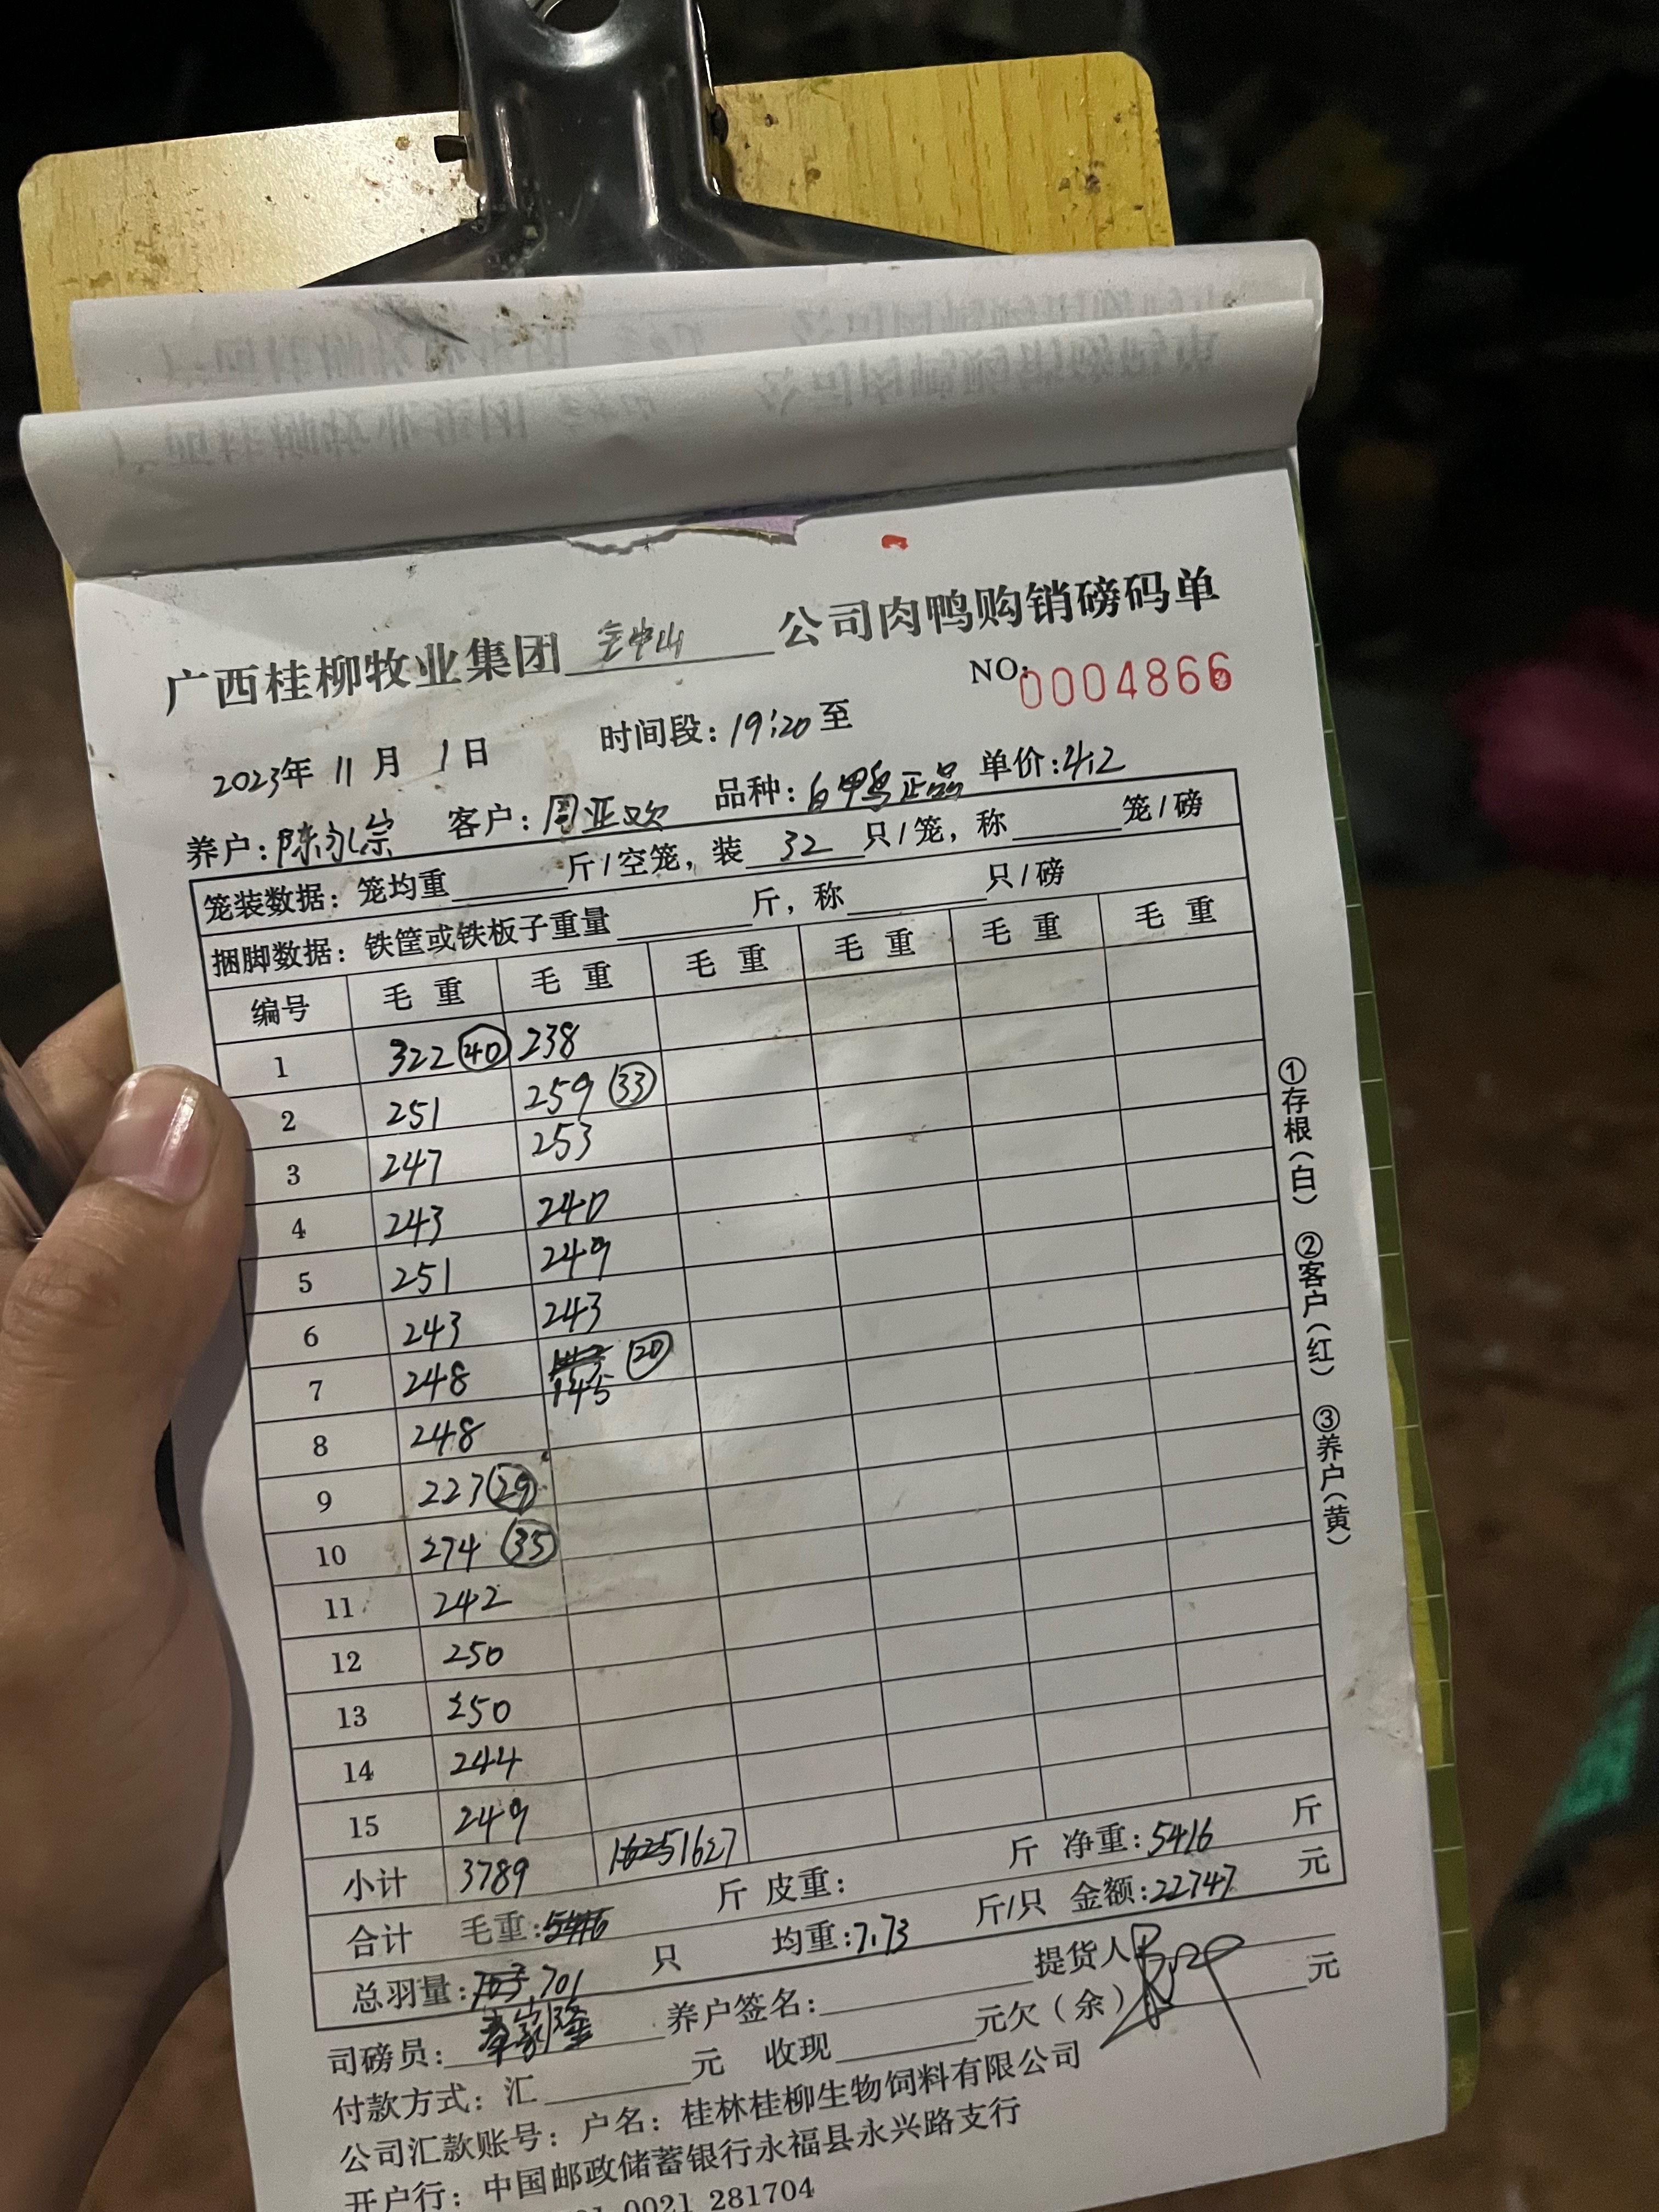 广西桂柳牧业集团 金中山 公司肉鸭购销磅码单
NO: 0004866
2023年 11月 1日 时间段: 19:20 至
养户: 陈永宗 客户: 周亚欢 品种: 白鸭正品 单价: 4.2
笼装数据: 笼均重 斤/空笼, 装 32 只/笼, 称 笼/磅
捆脚数据: 铁筐或铁板子重量 斤, 称 只/磅
编号 毛重 毛重 毛重 毛重 毛重 毛重
1 322 (40) 238
2 251 259 (33)
3 247 253
4 243 240
5 251 249
6 243 243
7 248 145 (20)
8 248
9 227 (29)
10 274 (35)
11 242
12 250
13 250
14 244
15 249
小计 3789 1625 1627
合计 毛重: 5416 斤 皮重: 斤 净重: 5416 斤
总羽量: 703 701 只 均重: 7.73 斤/只 金额: 22747 元
司磅员: 养户签名: 提货人
付款方式: 汇 元 收现 元欠(余) 元
公司汇款账号: 户名: 桂林桂柳生物饲料有限公司
开户行: 中国邮政储蓄银行永福县永兴路支行
0021 281704
①存根(白) ②客户(红) ③养户(黄)